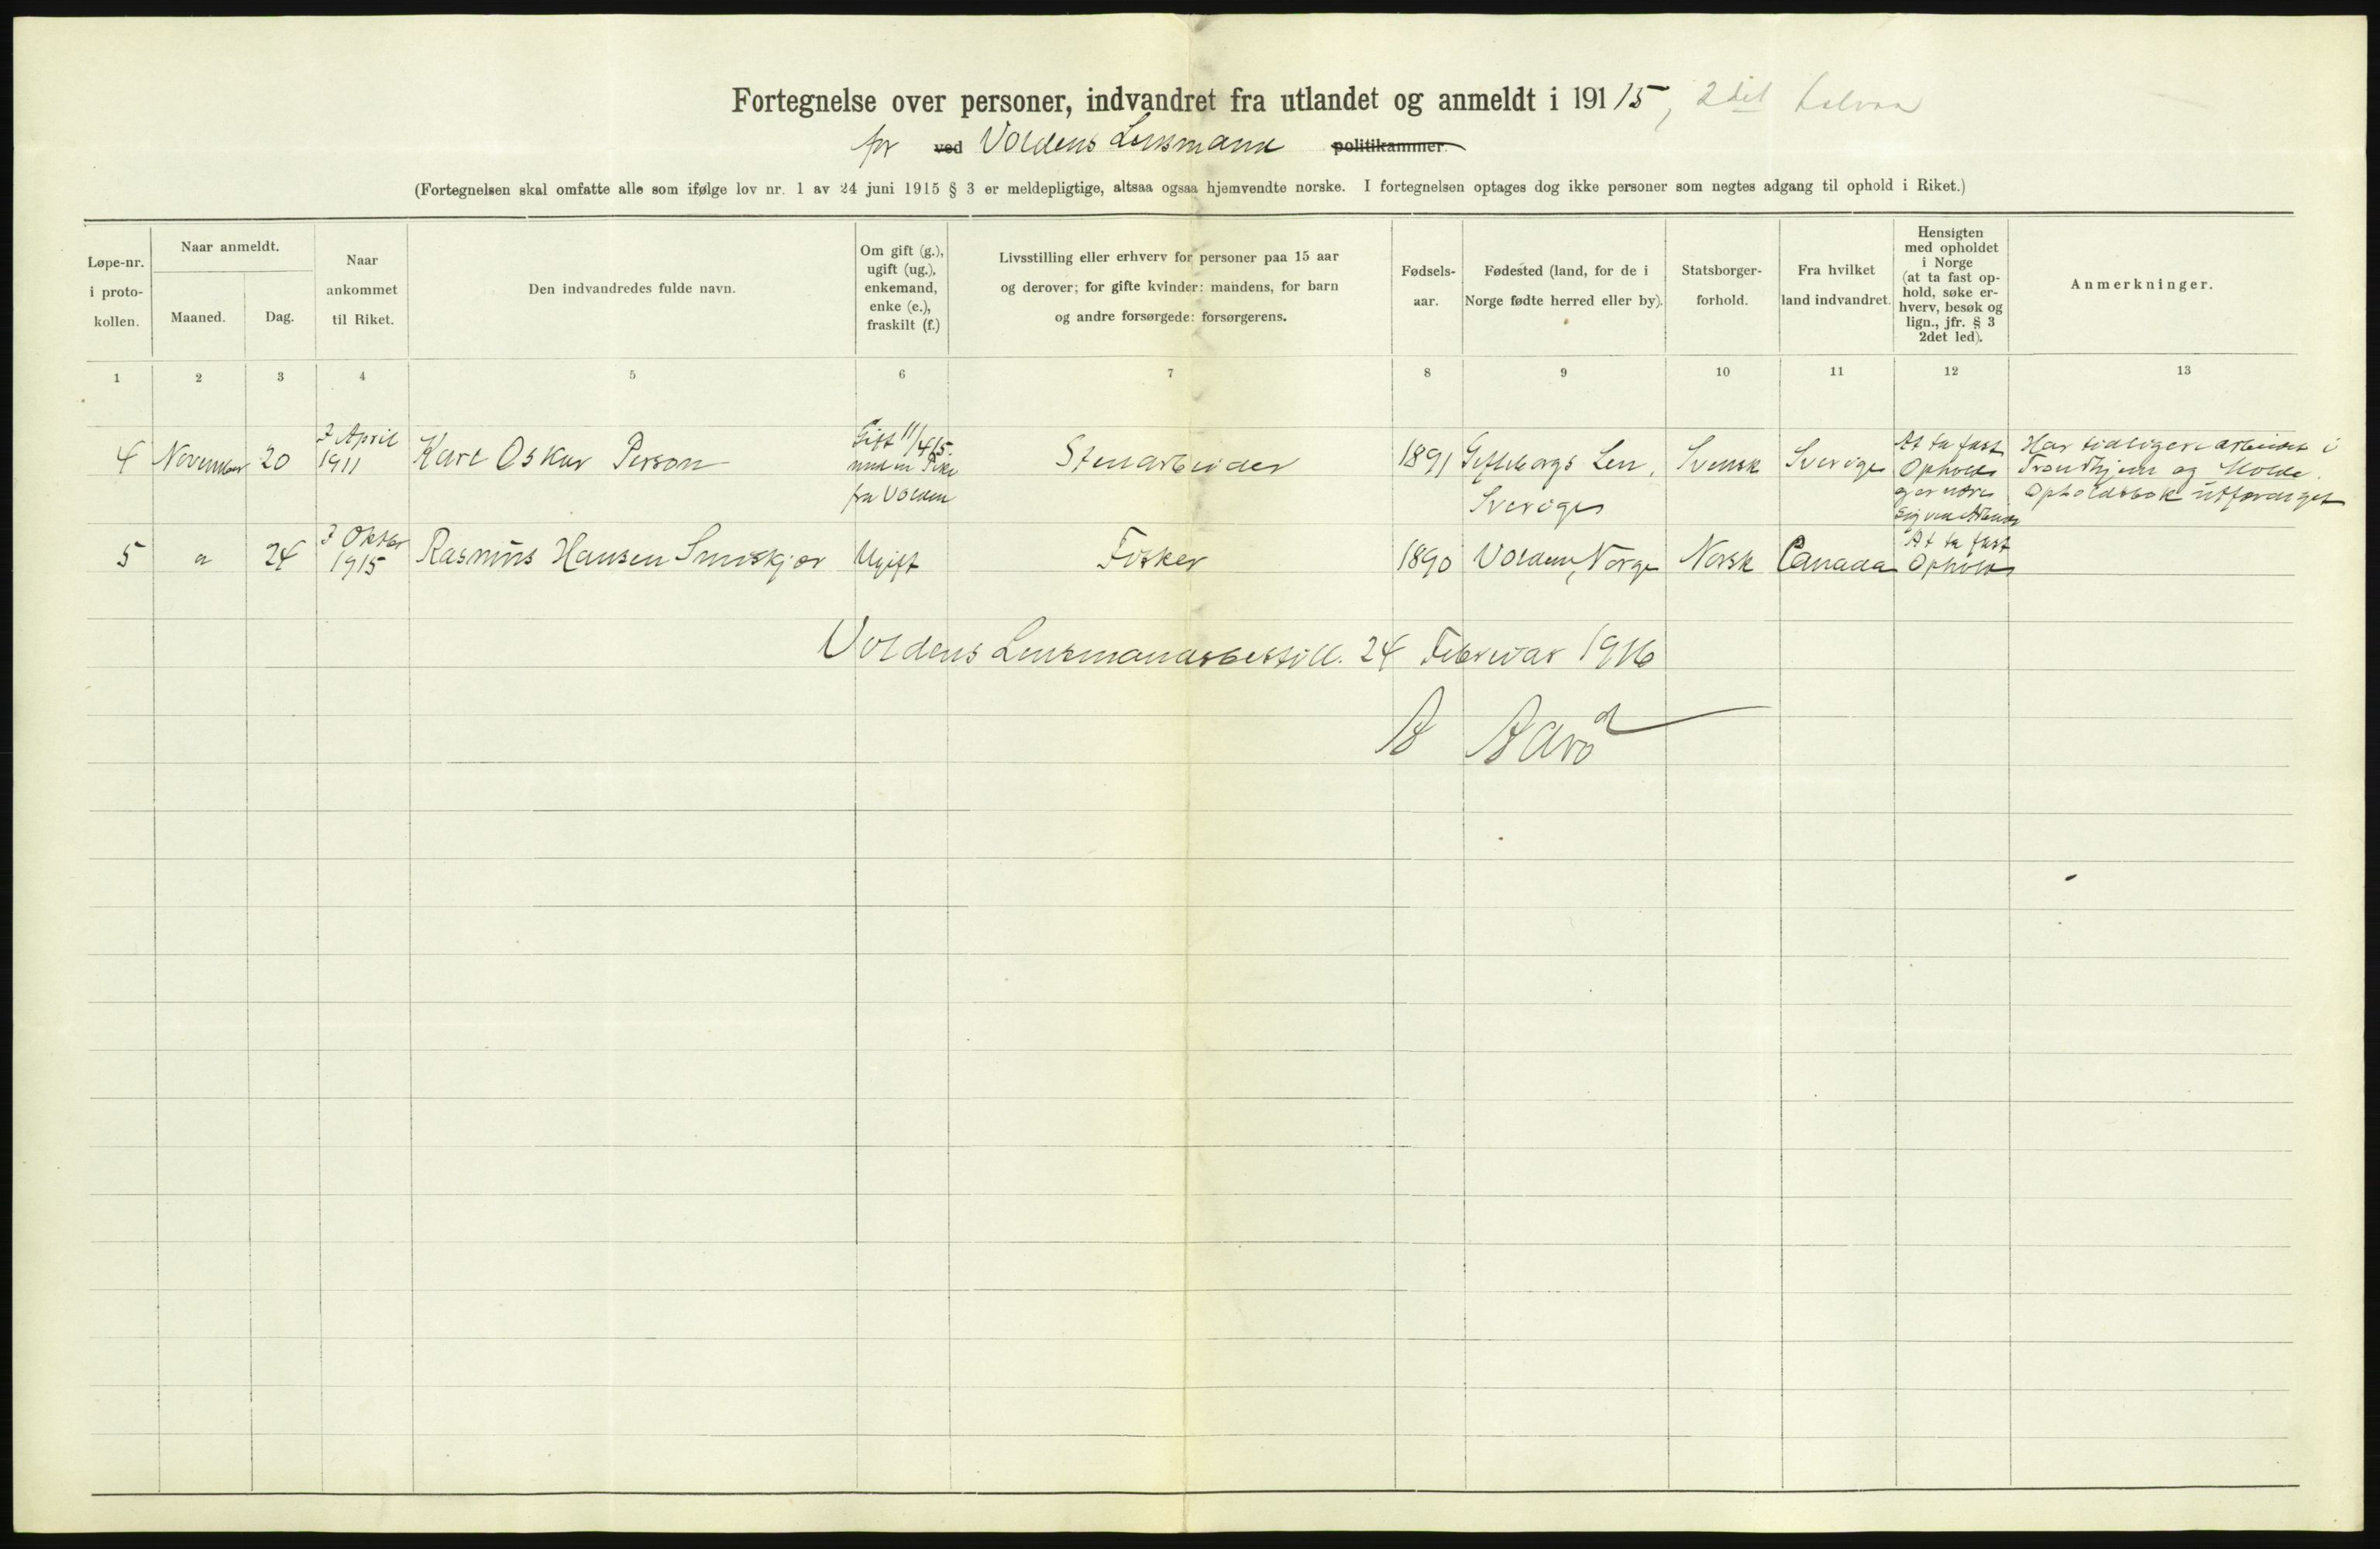 Fortegnelse over personer, indvandret fra utlandet og anmeldt i 19115, 2det halvaar
for ved Voldens Lensmand politikammer.
(Fortegnelsen skal omfatte alle som ifølge lov nr. 1 av 24 juni 1915 § 3 er meldepligtige, altsaa ogsaa hjemvendte norske. I fortegnelsen optages dog ikke personer som negtes adgang til ophold i Riket.)
Løpe-nr.
i proto-
kollen.
Naar anmeldt.
Maaned.
Dag.
Naar
ankommet
til Riket.
Den indvandredes fulde navn.
Om gift (g.),
ugift (ug.),
enkemand,
enke (e.),
fraskilt (f.)
Livsstilling eller erhverv for personer paa 15 aar
og derover; for gifte kvinder: mandens, for barn
og andre forsørgede: forsørgerens.
Fødsels-
aar.
Fødested (land, for de i
Norge fødte herred eller by).
Statsborger-
forhold.
Fra hvilket
land indvandret.
Hensigten
med opholdet
i Norge
(at ta fast op-
hold, søke er-
hverv, besøk og
lign., jfr. § 3
2det led).
Anmerkninger.
1 2 3 4 5 6 7 8 9 10 11 12 13
4 November 20
7 April
1911
Karl Oskar Person
Gift 11/4 15
med en Pike
fra Volden
Stenarbeider
1891
Gefleborgs Len,
Sverige
Svensk
Sverige
At ta fast
Ophold
og ernære
sig ved Arbeide
Har tidligere arbeidet i
Trondhjem og Molde.
Opholdsbok utfærdiget
5 " 24
7 Oktbr
1915
Rasmus Hansen Småskjær
Ugift
Fisker
1890
Volden, Norge
Norsk
Canada
At ta fast
Ophold
Voldens Lensmandsbestill. 24 Februar 1916
A Aarø